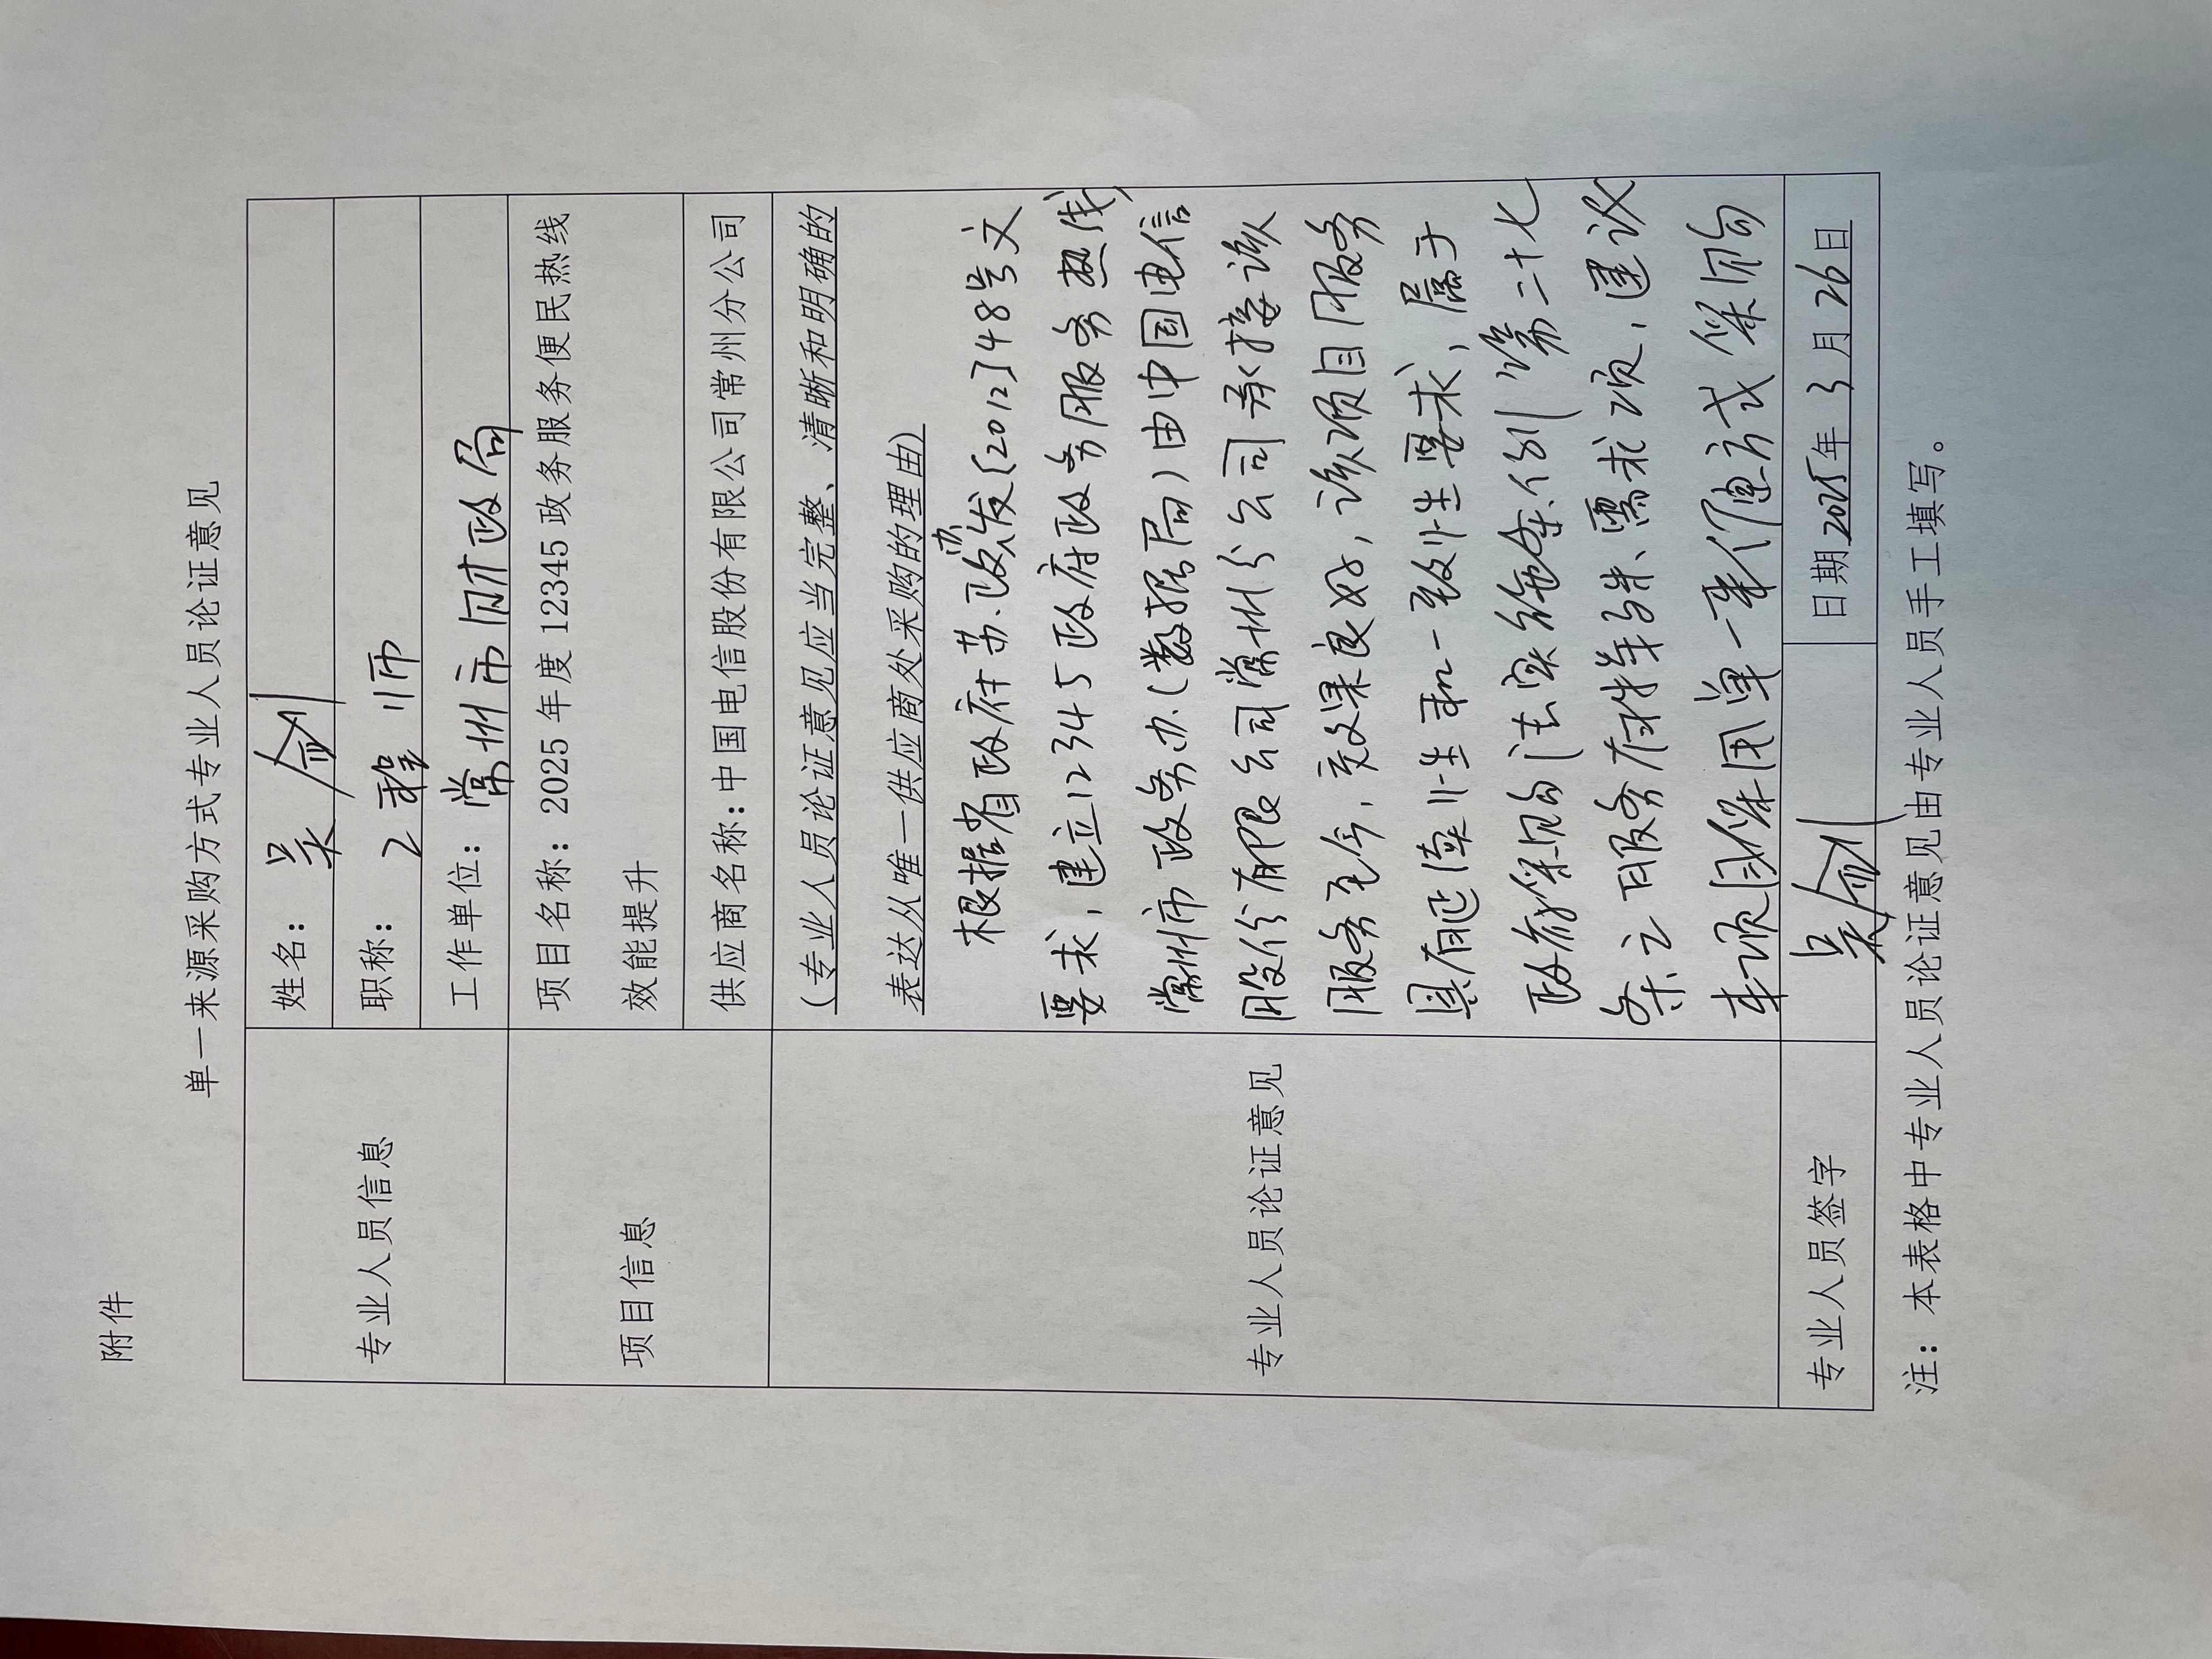 附件
单一来源采购方式专业人员论证意见
专业人员信息
姓名：吴剑
职称：工程师
工作单位：常州市财政局
项目信息
项目名称：2025年度12345政务服务便民热线
效能提升
供应商名称：中国电信股份有限公司常州分公司
专业人员论证意见
（专业人员论证意见应当完整、清晰和明确的
表达从唯一供应商处采购的理由）
根据省政府苏政办发〔2012〕48号文
要求，建立12345政府政务服务热线，
常州市政务办（数据局）由中国电信
股份有限公司常州分公司承接该
服务至今，效果良好，该项目服务
具有延续性和一致性要求，属于
政府采购法实施条例第二十七
条之服务有特殊需求项，建议
本项目采用单一来源方式采购
专业人员签字
吴剑
日期2025年3月26日
注：本表格中专业人员论证意见由专业人员手工填写。